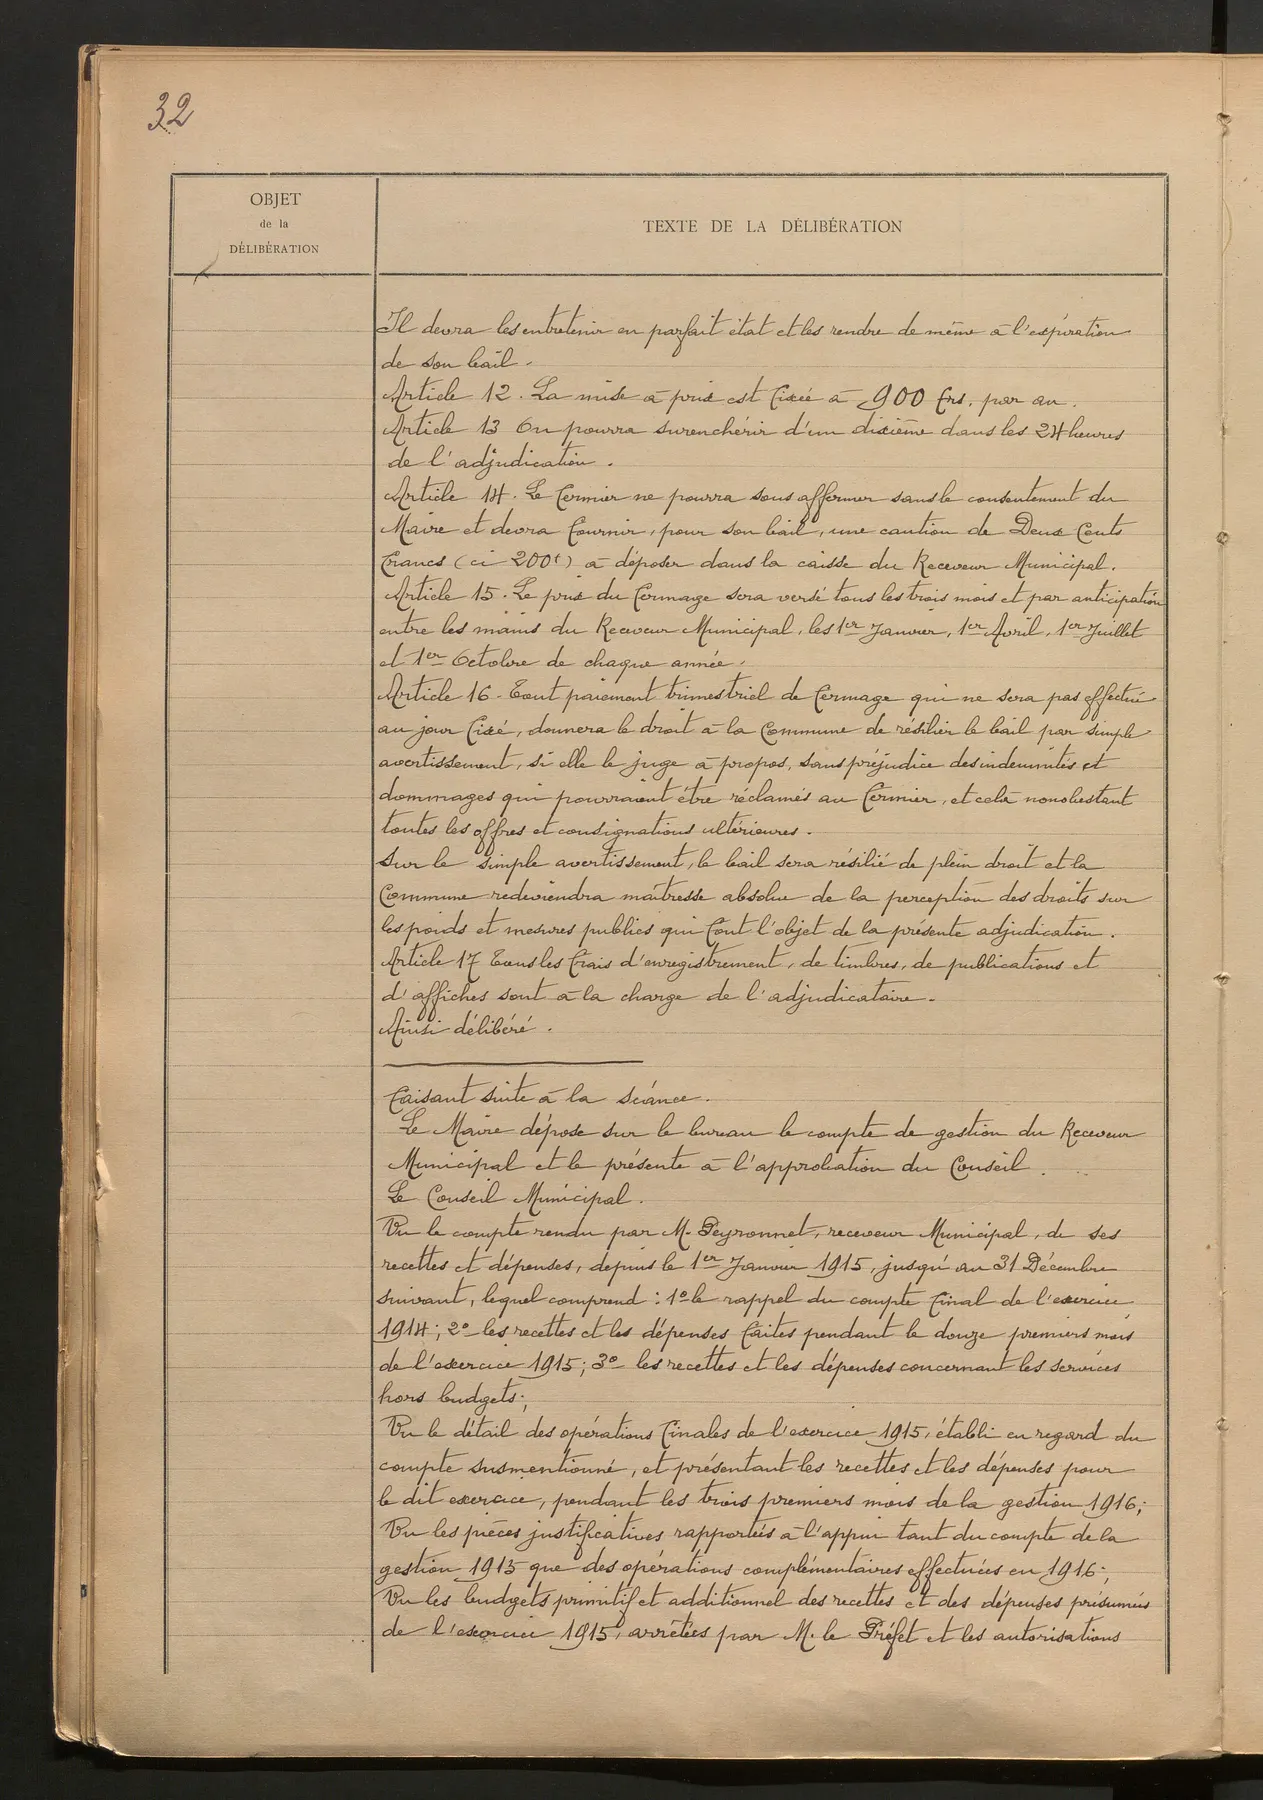 32
OBJET
de la
DÉLIBÉRATION
TEXTE DE LA DÉLIBÉRATION
Il devra les entretenir en parfait état et les rendre de même à l'expiration
de son bail.
Article 12. La mise à prix est fixée à 900 frs. par an.
Article 13 On pourra surenchérir d'un dixième dans les 24 heures
de l'adjudication.
Article 14. Le fermier ne pourra sous affermer sans le consentement du
Maire et devra fournir, pour son bail, une caution de Deux Cents
francs (ci 200f) à déposer dans la caisse du Receveur Municipal.
Article 15. Le prix du fermage sera versé tous les trois mois et par anticipation
entre les mains du Receveur Municipal, les 1er Janvier, 1er Avril, 1er Juillet
et 1er Octobre de chaque année.
Article 16. Tout paiement trimestriel de fermage qui ne sera pas effectué
au jour fixé, donnera le droit à la Commune de résilier le bail par simple
avertissement, si elle le juge à propos, sans préjudice des indemnités et
dommages qui pourraient être réclamés au fermier, et celà nonobstant
toutes les offres et consignations ultérieures.
Sur le simple avertissement, le bail sera résilié de plein droit et la
Commune redeviendra maîtresse absolue de la perception des droits sur
les poids et mesures publics qui font l'objet de la présente adjudication.
Article 17 Tous les frais d'enregistrement, de timbres, de publications et
d'affiches sont à la charge de l'adjudicataire.
Ainsi délibéré.
Faisant suite à la séance.
Le Maire dépose sur le bureau le compte de gestion du Receveur
Municipal et le présente à l'approbation du Conseil.
Le Conseil Municipal.
Vu le compte rendu par M. Peyronnet, receveur Municipal, de ses
recettes et dépenses, depuis le 1er Janvier 1915, jusqu'au 31 Décembre
suivant, lequel comprend : 1º le rappel du compte final de l'exercice
1914; 2º les recettes et les dépenses faites pendant le douze premiers mois
de l'exercice 1915; 3º les recettes et les dépenses concernant les services
hors budgets;
Vu le détail des opérations finales de l'exercice 1915, établi en regard du
compte susmentionné, et présentant les recettes et les dépenses pour
le dit exercice, pendant les trois premiers mois de la gestion 1916;
Vu les pièces justificatives rapportées à l'appui tant du compte de la
gestion 1915 que des opérations complémentaires effectuées en 1916;
Vu les budgets primitif et additionnel des recettes et des dépenses présumées
de l'exercice 1915, arrêtées par M. le Préfet et les autorisations